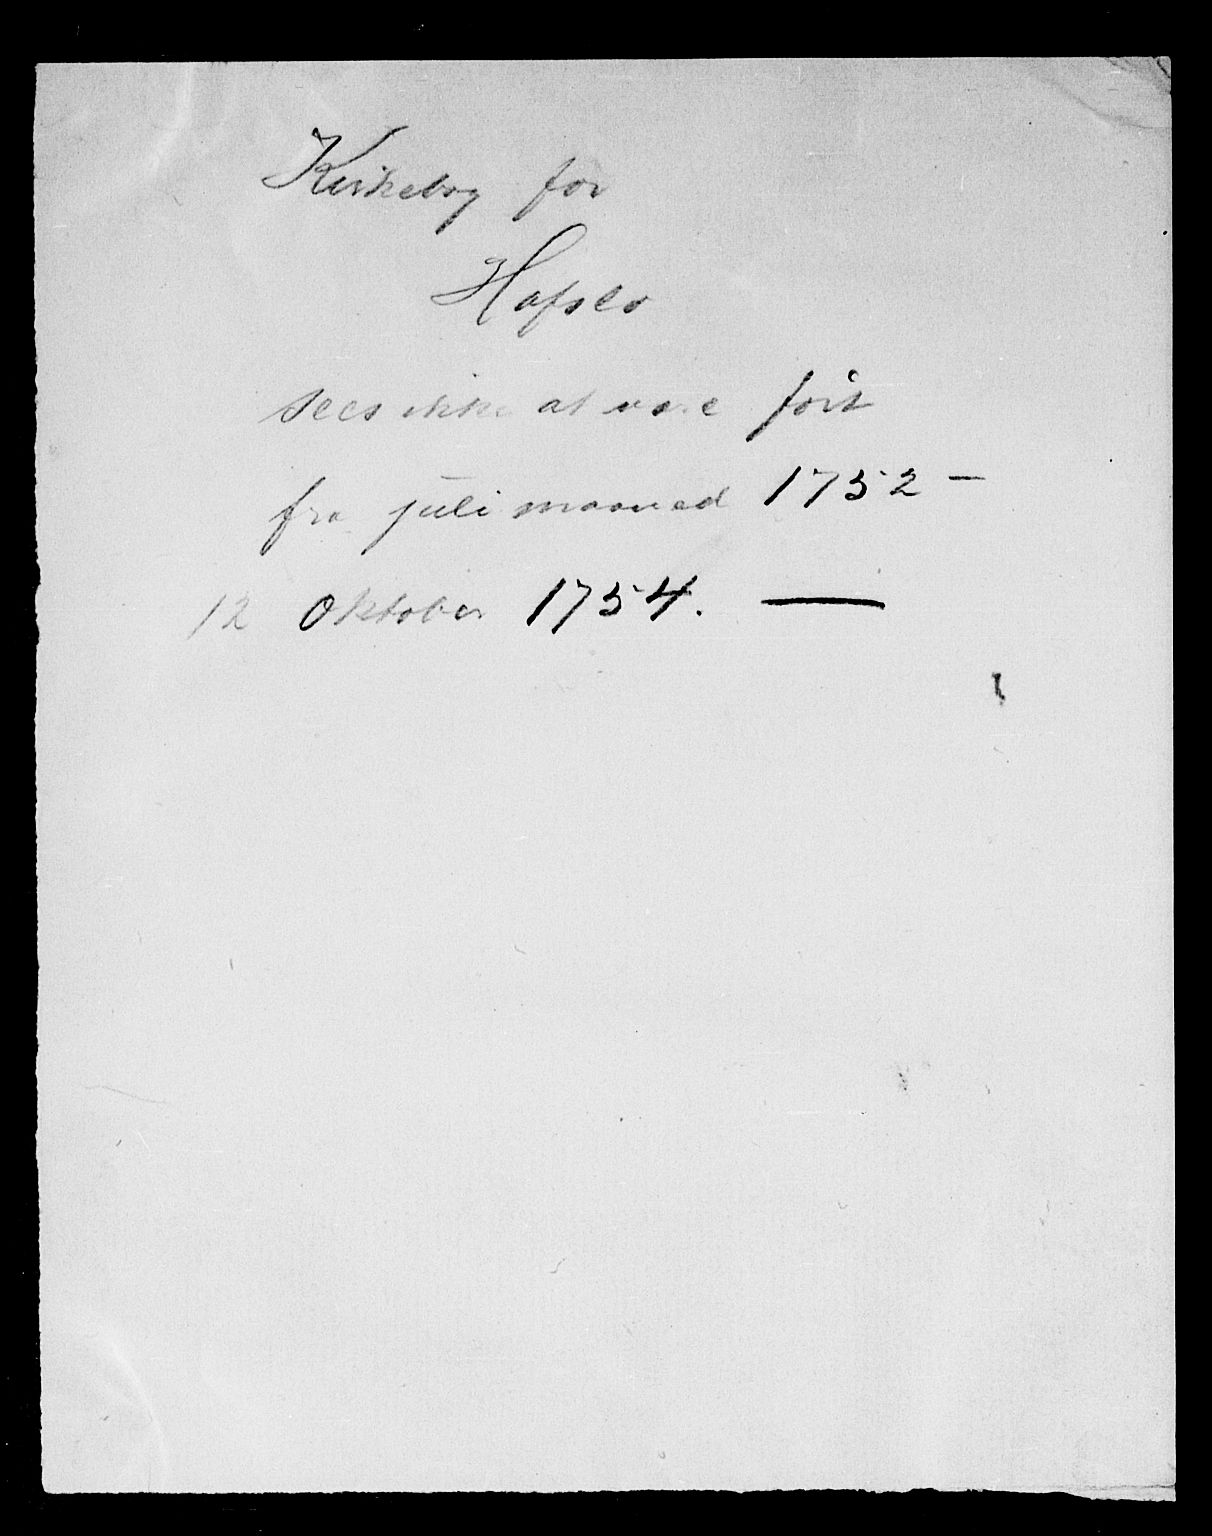 Kirkebog for
Hafslo
sees ikke at være ført
fra juli maaned 1752 -
12 Oktober 1754. —